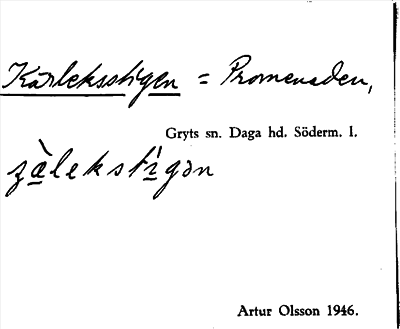 Kärleksstigen = Promenaden,
Gryts sn. Daga hd. Söderm. l.
Artur Olsson 1946.